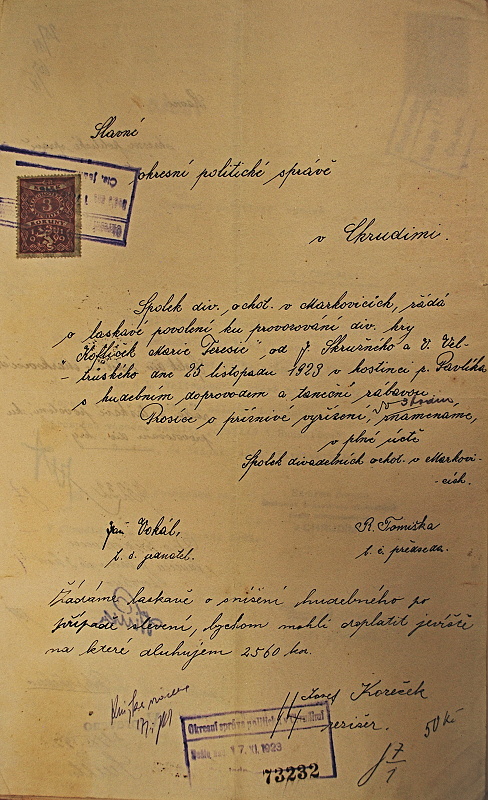 Slavné
okresní politické správě
v Chrudimi.
Spolek div. ochot. v Markovicích, žádá
o laskavé povolení ku provozování div. hry
"Kořtíček Marie Teresie", od J. Skružného a V. Vel-
-trúského dne 25 listopadu 1923 v hostinci p. Pavlíka
s hudebním doprovodem a taneční zábavou.
Prosíce o příznivé vyřízení, znamenáme,
v plné úctě
Spolek divadelních ochot. v Markovi-
-cích.
Jan Vokál, R. Tomiška
t. č. jednatel. t. č. předseda.
Žádáme laskavě o snížení hudebného po
případě slevení, bychom mohli doplatit jeviště
na které dluhujem 2560 kor.
Josef Kořeček
režisér.
50 Kč
Okresní správa politická v Chrudimi
Došlo dne 17. XI. 1923
73232
7
1
3